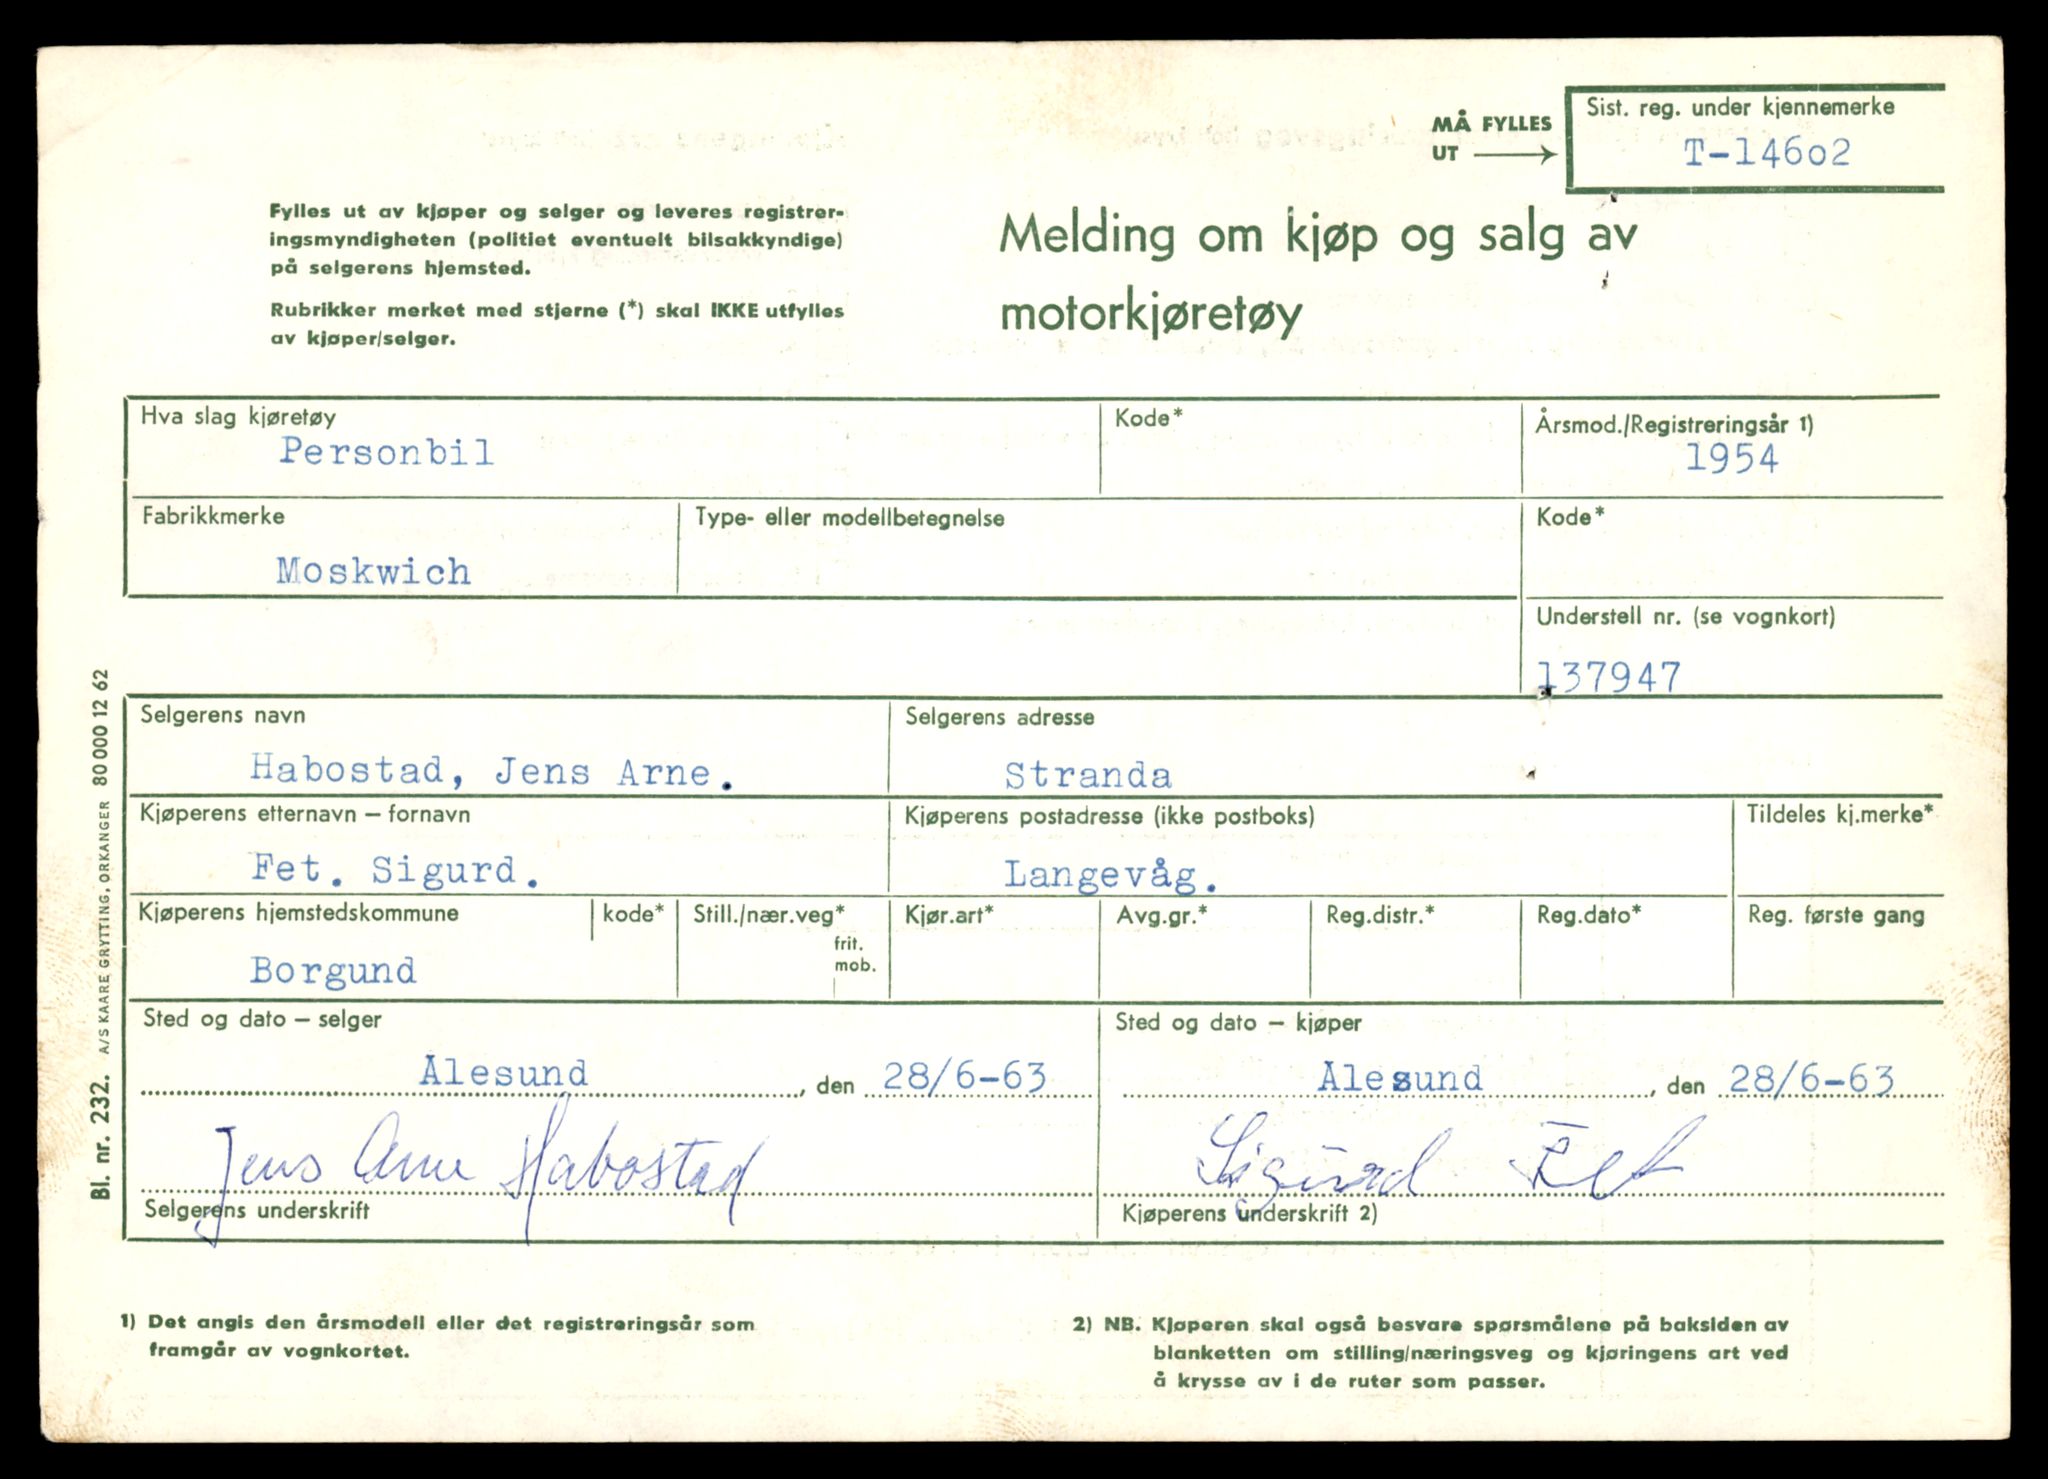 MÅ FYLLES
UT
Sist. reg. under kjennemerke
T-14602
Fylles ut av kjøper og selger og leveres registrer-
ingsmyndigheten (politiet eventuelt bilsakkyndige)
på selgerens hjemsted.
Rubrikker merket med stjerne (*) skal IKKE utfylles
av kjøper/selger.
Melding om kjøp og salg av
motorkjøretøy
Hva slag kjøretøy
Personbil
Kode*
Årsmod./Registreringsår 1)
1954
Fabrikkmerke
Moskwich
Type- eller modellbetegnelse
Kode*
Understell nr. (se vognkort)
137947
Selgerens navn
Habostad, Jens Arne.
Selgerens adresse
Stranda
Kjøperens etternavn – fornavn
Fet. Sigurd.
Kjøperens postadresse (ikke postboks)
Langevåg.
Tildeles kj.merke*
Kjøperens hjemstedskommune
Borgund
kode*
Still./nær.veg*
frit.
mob.
Kjør.art*
Avg.gr.*
Reg.distr.*
Reg.dato*
Reg. første gang
Sted og dato – selger
Alesund, den 28/6-63
Jens Arne Habostad
Selgerens underskrift
Sted og dato – kjøper
Alesund, den 28/6-63
Sigurd Fet
Kjøperens underskrift 2)
1) Det angis den årsmodell eller det registreringsår som
framgår av vognkortet.
2) NB. Kjøperen skal også besvare spørsmålene på baksiden av
blanketten om stilling/næringsveg og kjøringens art ved
å krysse av i de ruter som passer.
Bl. nr. 232. A/S KAARE GRYTTING, ORKANGER 80 000 12 62